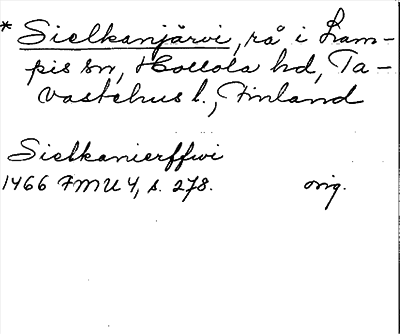 * Sielkanjärvi, rå i Lam-
pis sn, Hollola hd, Ta-
vastehus l., Finland
Sielkanierffwi
1466 FMU 4, s. 278. orig.